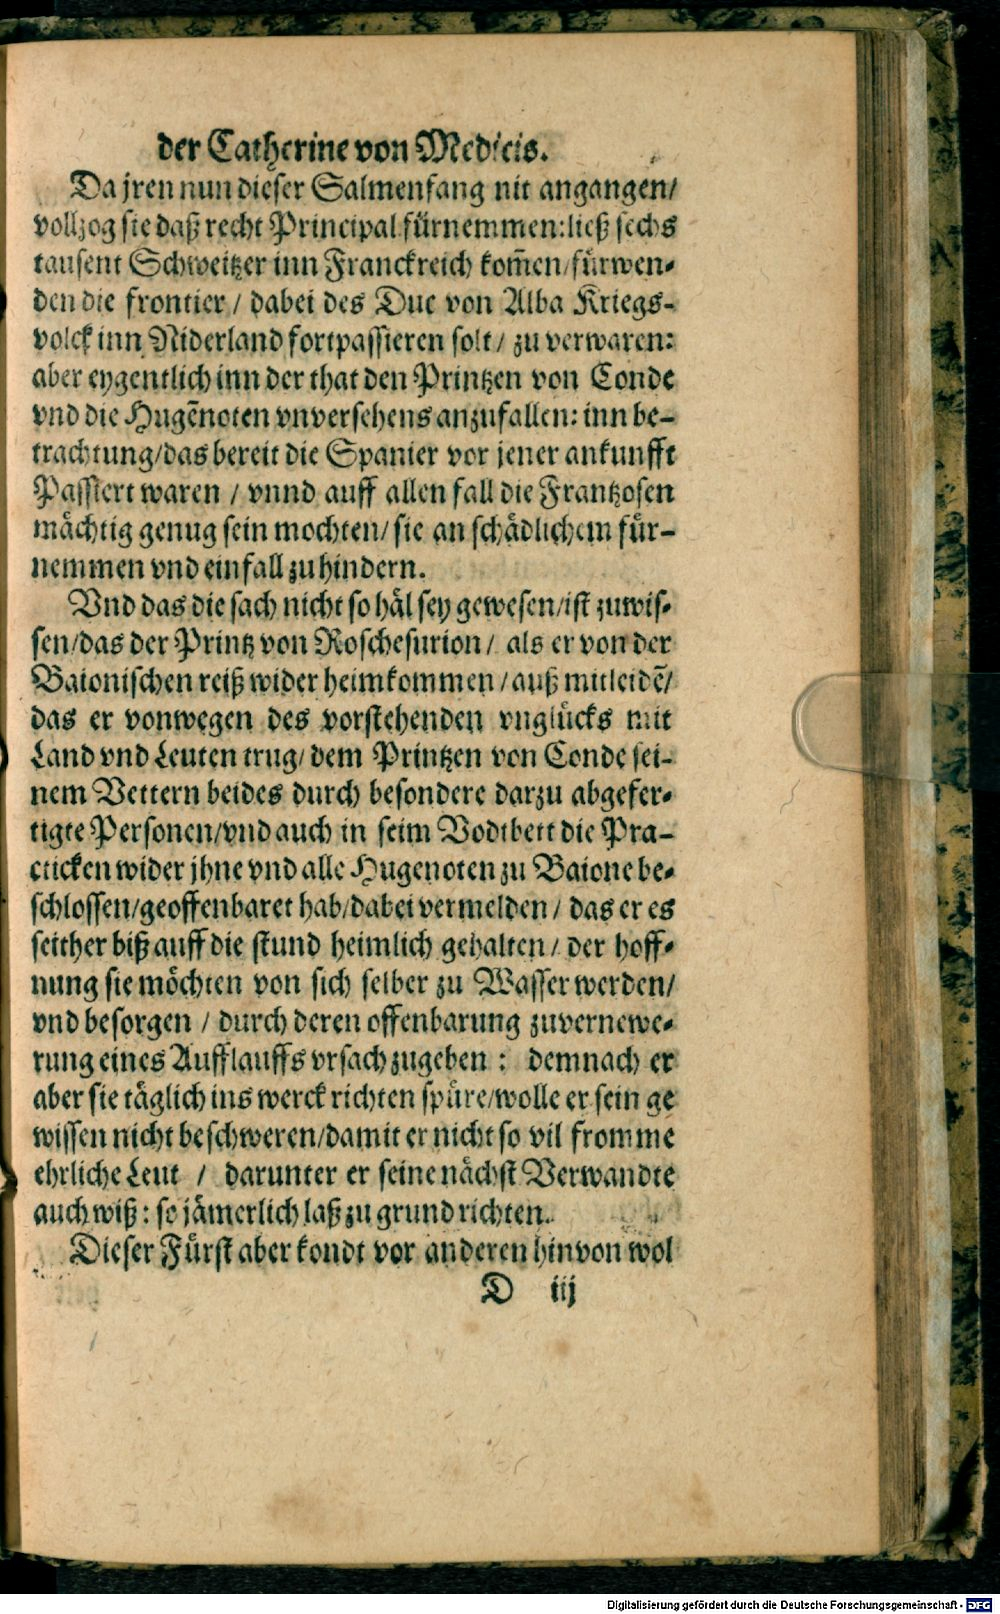 der Catherine von Medicis.
Da jren nun dieser Salmenfang nit angangen/
vollzog sie daß recht Principal fürnemmen: ließ sechs
tausent Schweitzer inn Franckreich kom̄en/fürwen-
den die frontier / dabei des Duc von Alba Kriegs-
volck inn Niderland fortpassieren solt / zu verwaren:
aber eygentlich inn der that den Printzen von Conde
vnd die Hugēnoten vnversehens anzufallen: inn be-
trachtung/das bereit die Spanier vor jener ankunfft
Passiert waren / vnnd auff allen fall die Frantzosen
mächtig genug sein mochten/ sie an schädlichem für-
nemmen vnd einfall zu hindern.
Vnd das die sach nicht so häl sey gewesen/ist zuwis-
sen/das der Printz von Roschesurion / als er von der
Baionischen reiß wider heimkommen / auß mitleidē/
das er vonwegen des vorstehenden vnglücks mit
Land vnd Leuten trug/ dem Printzen von Conde sei-
nem Vettern beides durch besondere darzu abgefer-
tigte Personen/vnd auch in seim Vodtbett die Pra-
cticken wider jhne vnd alle Hugenoten zu Baione be-
schlossen/geoffenbaret hab/dabei vermelden / das er es
seither biß auff die stund heimlich gehalten / der hoff-
nung sie möchten von sich selber zu Wasser werden/
vnd besorgen / durch deren offenbarung zuvernewe-
rung eines Aufflauffs vrsach zugeben : demnach er
aber sie täglich ins werck richten spüre/wolle er sein ge
wissen nicht beschweren/damit er nicht so vil fromme
ehrliche Leut / darunter er seine nächst Verwandte
auch wiß: so jämerlich laß zu grund richten.
Dieser Fürst aber kondt vor anderen hinvon wol
D iij
Digitalisierung gefördert durch die Deutsche Forschungsgemeinschaft - DFG